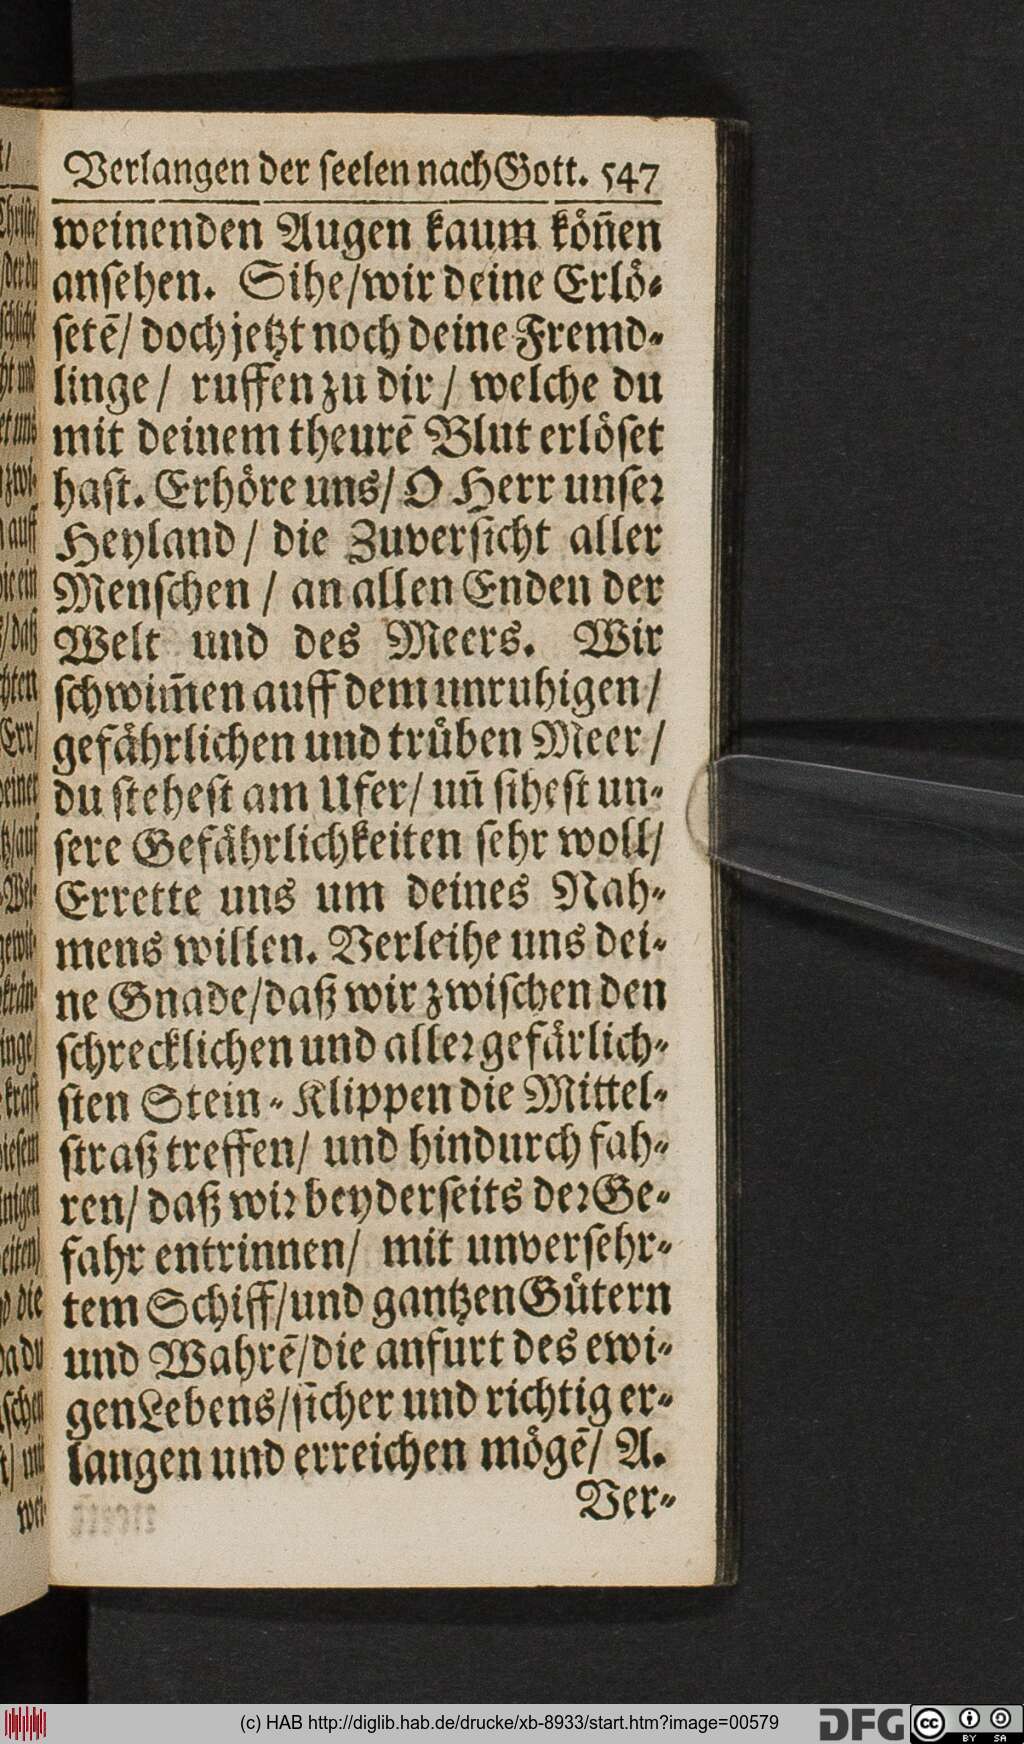 Verlangen der ſeelen nach Gott. 547
weinenden Augen kaum koͤñen
anſehen. Sihe/wir deine Erloͤ⸗
ſetē/ doch jetzt noch deine Fremd⸗
linge/ ruffen zu dir/ welche du
mit deinem theurē Blut erloͤſet
haſt. Erhoͤre uns/ O Herr unſeꝛ
Heyland/ die Zuverſicht aller
Menſchen/ an allen Enden der
Welt und des Meers. Wir
ſchwim̃en auff dem unruhigen/
gefaͤhrlichen und truͤben Meer/
du ſteheſt am Ufer/ uñ ſiheſt un⸗
ſere Gefaͤhrlichkeiten ſehr woll/
Errette uns um deines Nah⸗
mens willen. Verleihe uns dei⸗
ne Gnade/daß wir zwiſchen den
ſchrecklichen und alleꝛgefaͤrlich⸗
ſten Stein⸗Klippen die Mittel⸗
ſtraß treffen/ und hindurch fah⸗
ren/ daß wiꝛ beyderſeits deꝛ Ge⸗
fahr entrinnen/ mit unverſehr⸗
tem Schiff/und gantzen Guͤtern
und Wahrē/die anfurt des ewi⸗
gen Lebens/ſicher und richtig er⸗
langen und erreichen moͤgē/ A.
Ver⸗
(c) HAB http://diglib.hab.de/drucke/xb-8933/start.htm?image=00579
DFG
cc BY SA